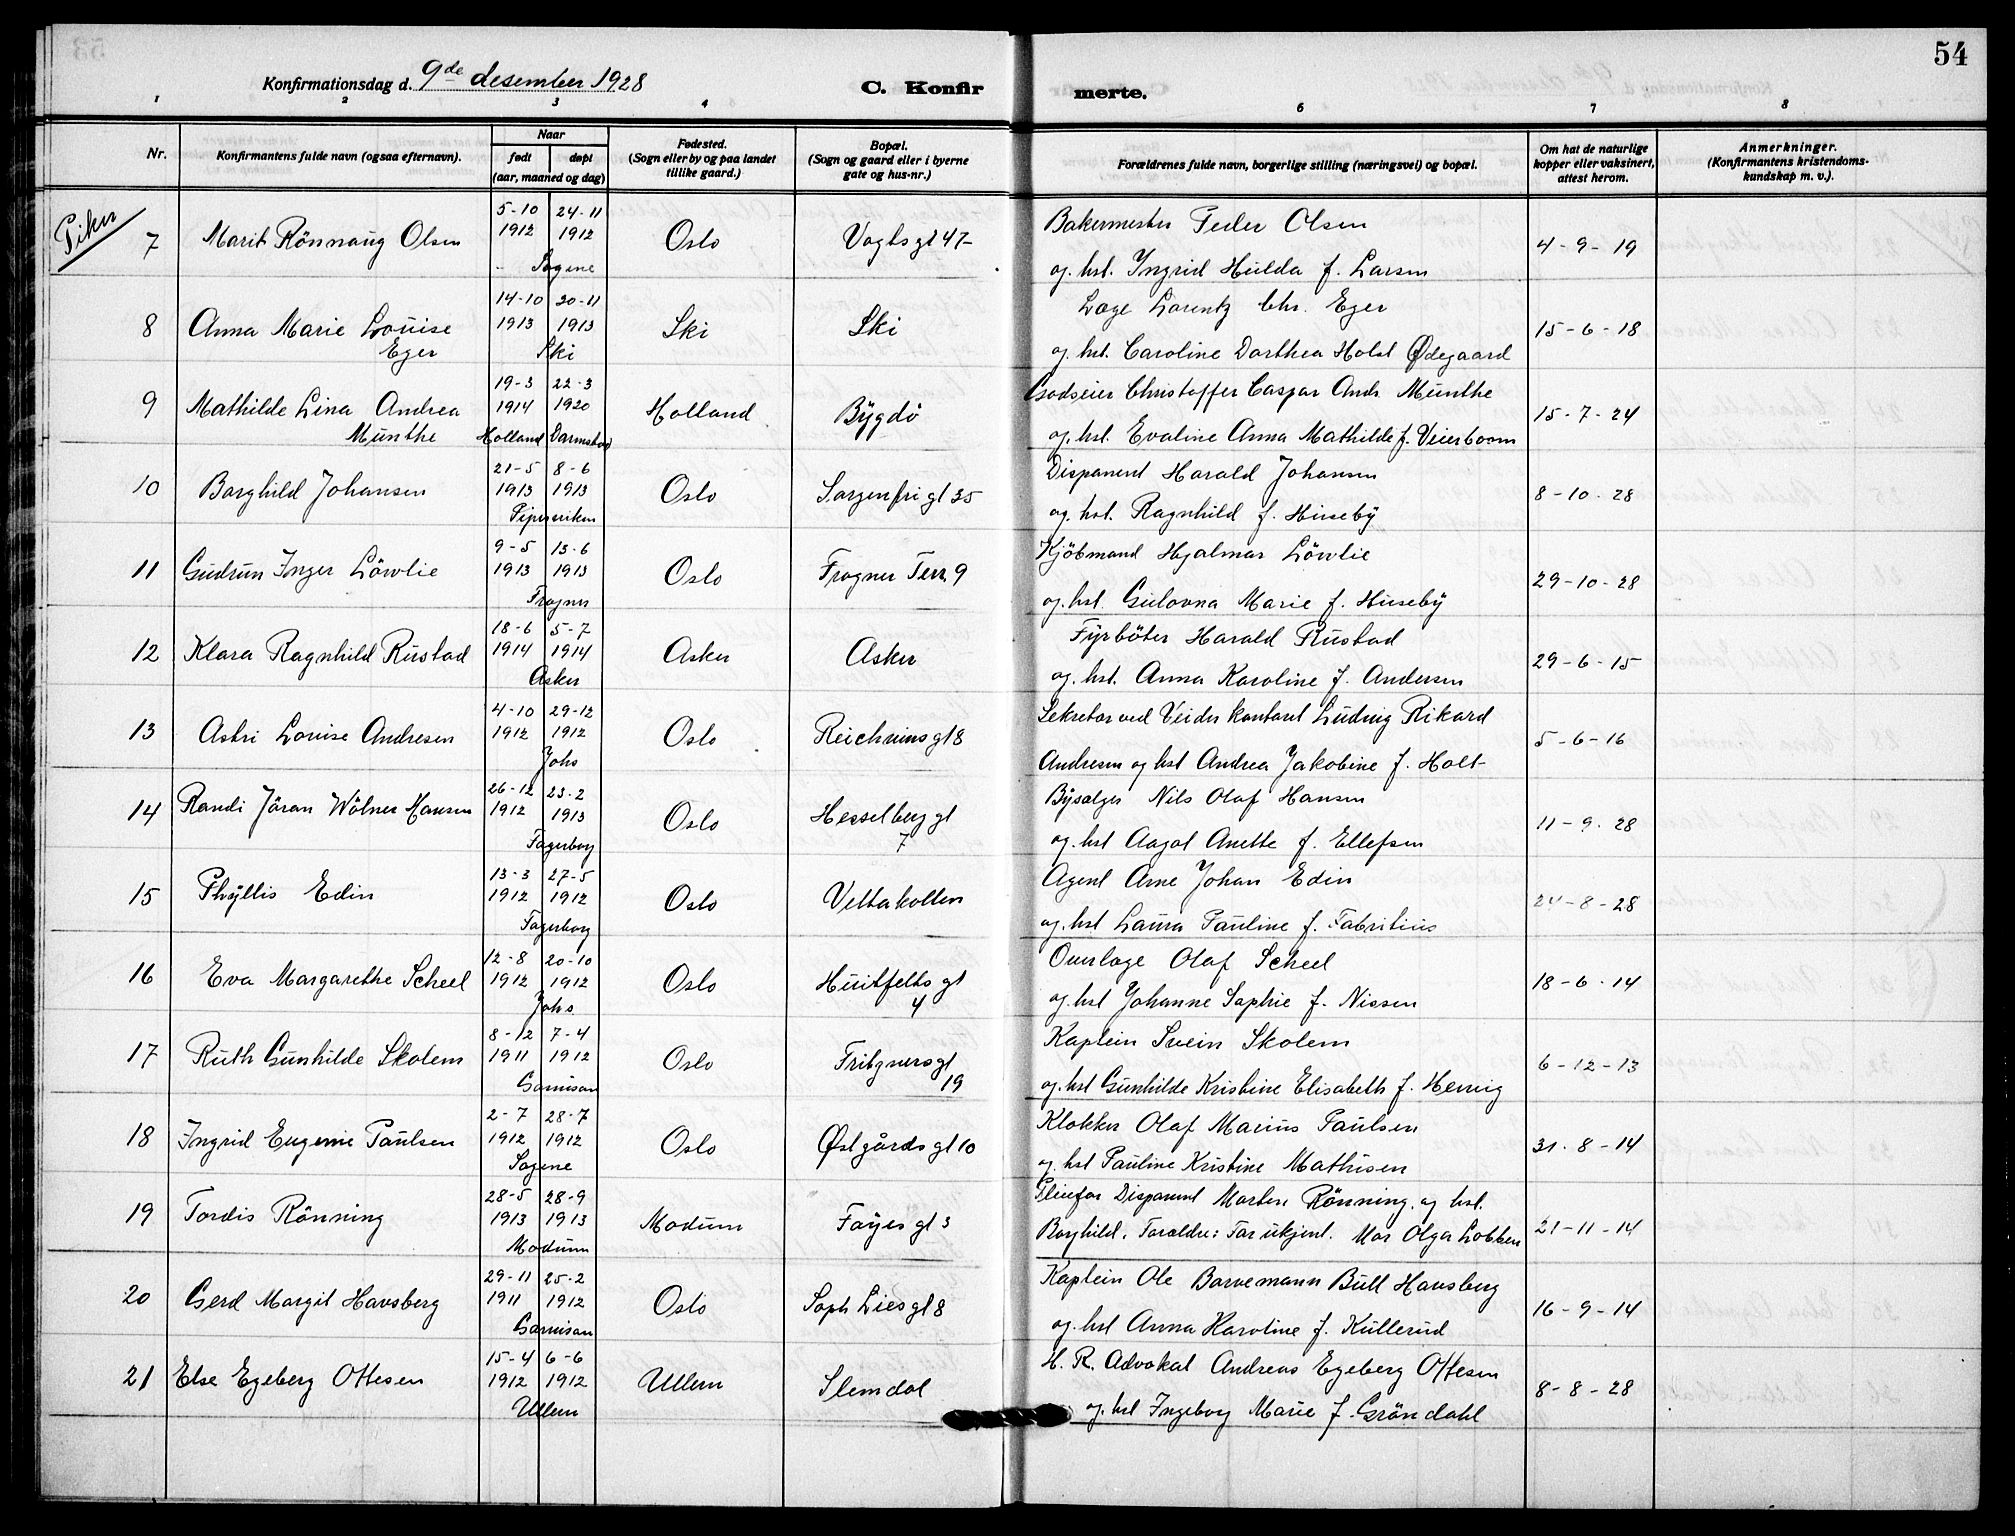 54
Konfirmationsdag d. 9de desember 1928
C. Konfirmerte.
1 2 3 4 6 7 8
Nr.
Konfirmantens fulde navn (ogsaa efternavn).
Naar
født døpt
(aar, maaned og dag)
Fødested.
(Sogn eller by og paa landet
tillike gaard.)
Bopæl.
(Sogn og gaard eller i byerne
gate og hus-nr.)
Forældrenes fulde navn, borgerlige stilling (næringsvei) og bopæl.
Om hat de naturlige
kopper eller vaksinert,
attest herom.
Anmerkninger.
(Konfirmantens kristendoms-
kundskap m. v.).
Piker
7 Marit Rönnaug Olsen 5-10 1912 24-11 1912 Sagene Oslo Vogts gt 47
Bakermester Peder Olsen
og hst. Ingrid Hulda f. Larsen
4-9-19
8 Anna Marie Louise
Eger 14-10 1913 20-11 1913 Ski Ski Ski
Læge Lorentz Chr. Eger
og hst. Caroline Dorthea Holst Ødegaard
15-6-18
9 Mathilde Lina Andrea
Munthe 19-3 1914 22-3 1920 Holland Holland Bygdö
Godseier Christoffer Caspar Andr. Munthe
og hst. Evaline Anna Mathilde f. Veierboom
15-7-24
10 Borghild Johansen 21-5 1913 8-6 1913 Piperviken Oslo Sorgenfri gt 35
Disponent Harald Johansen
og hst. Ragnhild f. Huseby
8-10-28
11 Gudrun Inger Lövlie 9-5 1913 13-6 1913 Frogner Oslo Frogner Terr. 9
Kjöbmand Hjalmar Lövlie
og hst. Gulovna Marie f. Huseby
29-10-28
12 Klara Ragnhild Rustad 18-6 1914 5-7 1914 Asker Asker Asker
Fyrböter Harald Rustad
og hst. Anna Karoline f. Andersen
29-6-15
13 Astri Louise Andresen 4-10 1912 29-12 1912 Johs Oslo Reichweins gt 8
Sekretær ved Veider kontoret Ludvig Rikard
Andresen og hst Andrea Jakobine f. Holt
5-6-16
14 Randi Jöran Wölner Hansen 26-12 1912 23-2 1913 Fagerborg Oslo Hesselberg gt
7
Bysælger Nils Olaf Hansen
og hst Aagot Anette f. Ellefsen
11-9-28
15 Phyllis Edin 13-3 1912 27-5 1912 Fagerborg Oslo Vettakollen
Agent Arne Johan Edin
og hst Laura Pauline f. Fabritius
24-8-28
16 Eva Margarethe Scheel 12-8 1912 20-10 1912 Johs Oslo Huitfelts gt
4
Overlæge Olaf Scheel
og hst Johanne Sophie f. Nissen
18-6-14
17 Ruth Gunhilde Skolem 8-12 1911 7-4 1912 Garnison Oslo Fritzners gt
19
Kaptein Svein Skolem
og hst Gunhilde Kristine Elisabeth f. Herwig
6-12-13
18 Ingrid Eugenie Paulsen 2-7 1912 28-7 1912 Sagene Oslo Østgårds gt 10
Klokker Olaf Marius Paulsen
og hst Pauline Kristine Mathisen
31-8-14
19 Tordis Rönning 28-5 1913 28-9 1913 Modum Modum Fayes gt 3
Pleiefor Disponent Morten Rönning og hst.
Borghild. Foreldre: Far ukjent. Mor Olga Lobben
21-11-14
20 Gerd Margit Hausberg 29-11 1911 25-2 1912 Garnison Oslo Soph Lies gt 8
Kaptein Ole Bornemann Bull Hausberg
og hst Anna Karoline f. Kullerud
16-9-14
21 Else Egeberg Ottesen 15-4 1912 6-6 1912 Ullern Ullern Slemdal
H. R. Advokat Andreas Egeberg Ottesen
og hst Ingeborg Marie f. Gröndahl
8-8-28